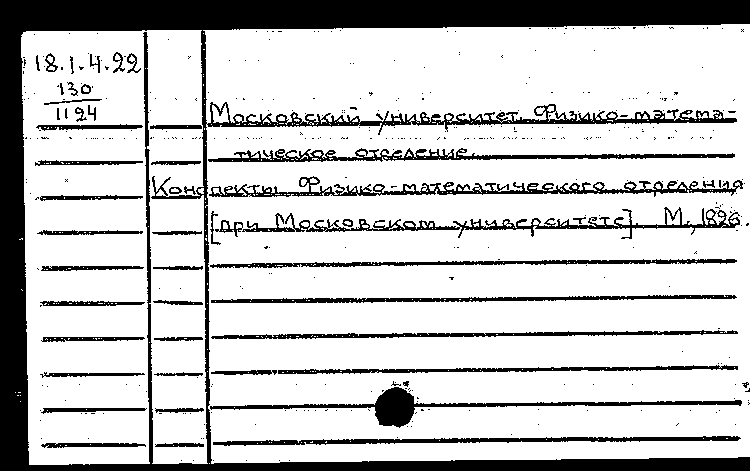 18.1.4.22
130
1194
Московский университет. Физико-матема-
тическое отделение.
Конспекты Физико-математического отделения
[при Московском университете]. М., 1826.